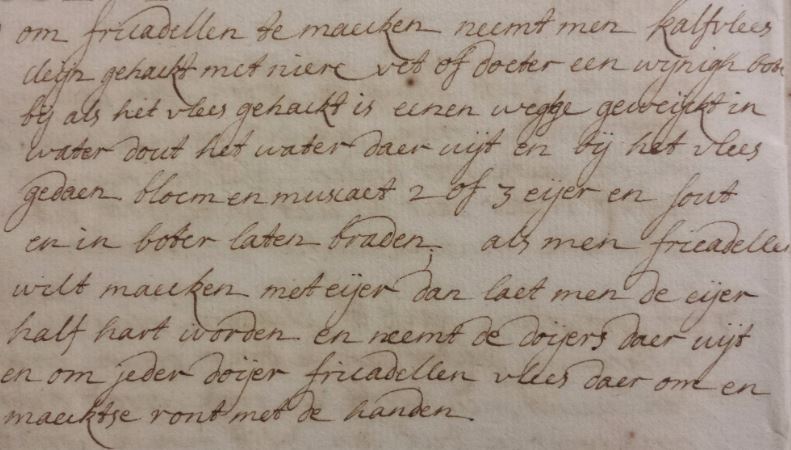 om fricadellen te maecken neemt men kalfvlees
cleijn gehackt met niere vet of doeter een wijnigh boter
bij als het vlees gehackt is eenen wegge geweijckt in
water dout het water daer uijt en bij het vlees
gedaen bloem en muscaet 2 of 3 eijer en sout
en in boter laten braden als men fricadelle
wilt maecken met eijer dan laet men de eijer
half hart worden en neemt de doijers daer uijt
en om jeder doijer fricadellen vlees daer om en
maecktse ront met de handen.